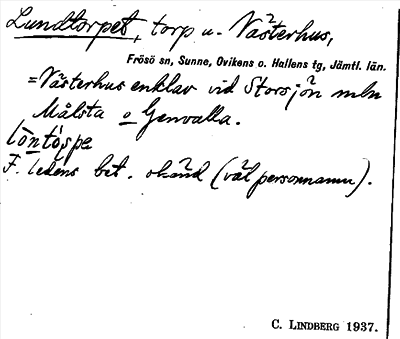 Lundtorpet, torp u. Västerhus,
Frösö sn, Sunne, Ovikens o. Hallens tg, Jämtl. län.
=Västerhus enklav vid Storsjön mln
Målsta o Genvalla.
lòntòspe
F. ledens bet. okänd (väl personnamn).
C. LINDBERG 1937.